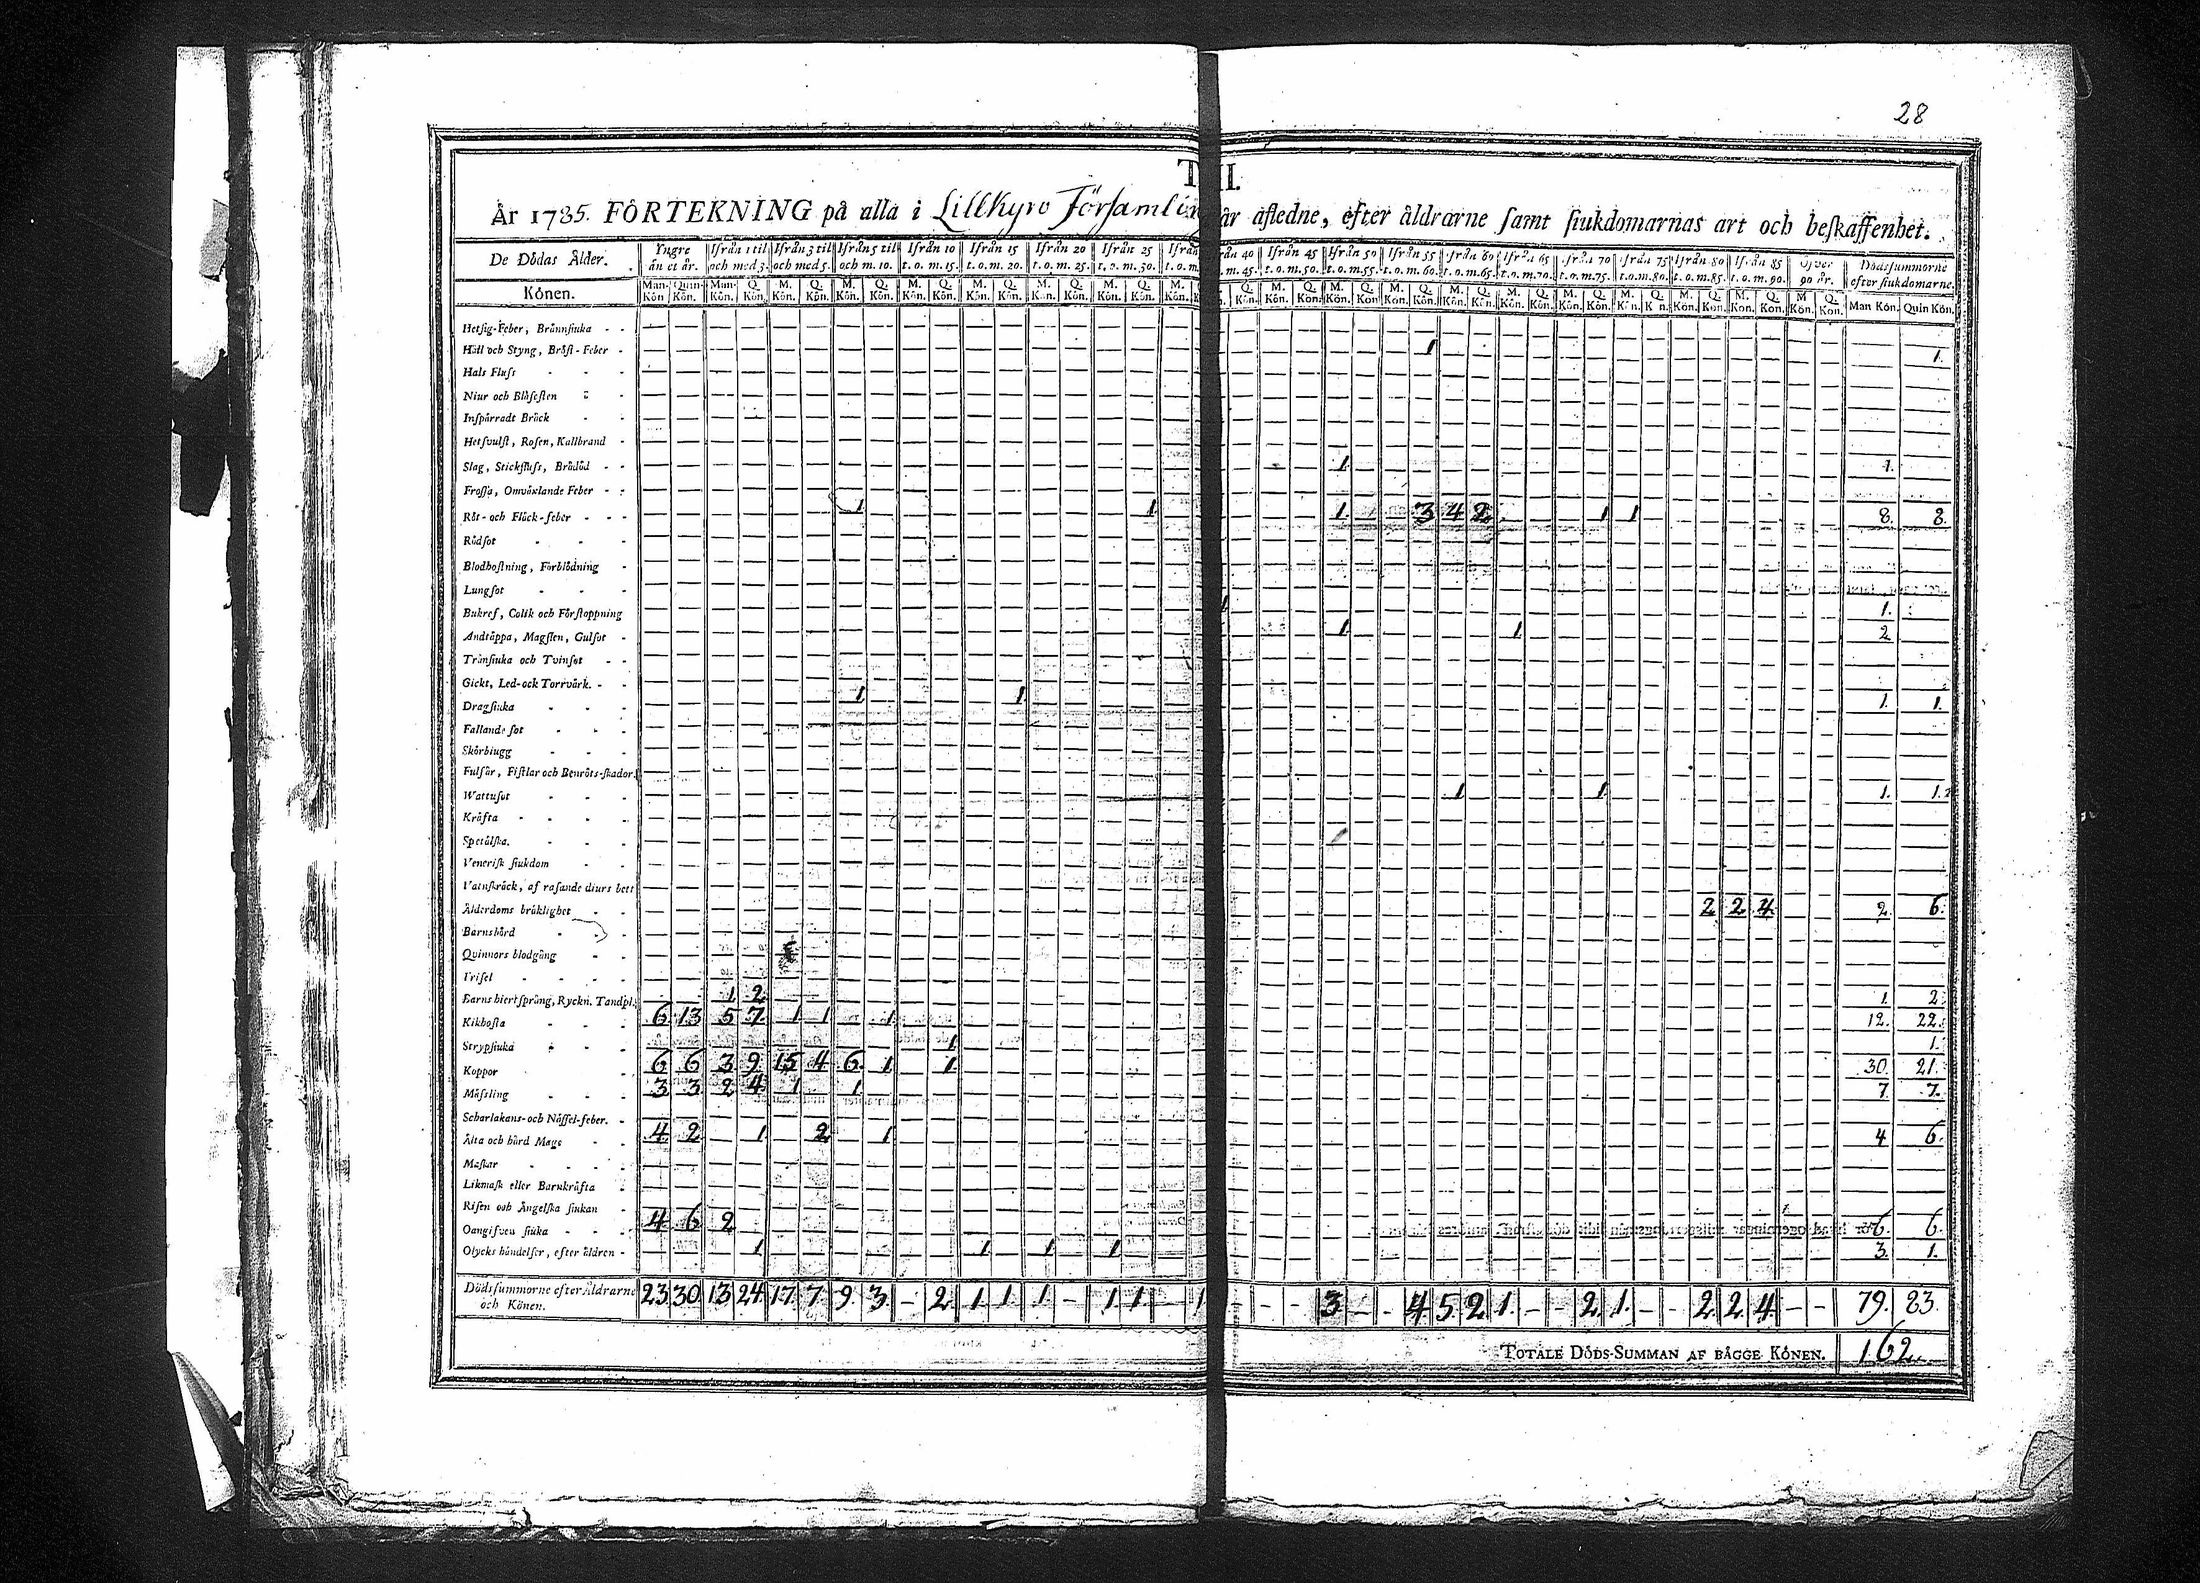 28
T II.
År 1785. FÖRTEKNING på alla i Lillkyro Församlin år afledne, efter åldrarne samt siukdomarnas art och beskaffenhet.
De Dödas Ålder. Yngre än et år. Ifrån 1 til och med 3. Ifrån 3 til och med 5. Ifrån 5 til och m. 10. Ifrån 10 t. o. m. 15. Ifrån 15 t. o. m. 20. Ifrån 20 t. o. m. 25. Ifrån 25 t. o. m. 30. Ifrån 40 m. 45. Ifrån 45 t. o. m. 50. Ifrån 50 t. o. m. 55. Ifrån 55 t. o. m. 60. Ifrån 60 t. o. m. 65. Ifrån 65 t. o. m. 70. Ifrån 70 t. o. m. 75. Ifrån 75 t. o. m. 80. Ifrån 80 t. o. m. 85. Ifrån 85 t. o. m. 90. Öfver 90 år. Dödssummorne efter siukdomarne.
Könen. Man Kön. Quin Kön. Man Kön. Q. Kön. M. Kön. Q. Kön. M. Kön. Q. Kön. M. Kön. Q. Kön. M. Kön. Q. Kön. M. Kön. Q. Kön. M. Kön. Q. Kön. Man Kön. Quin Kön.
Hetsig-Feber, Brännsiuka - -
Håll och Styng, Bröst-Feber - 1 1.
Hals Fluss - - -
Niur och Blåsesten -
Inspärradt Bråck - -
Hetsvulst, Rosen, Kallbrand -
Slag, Stickfluss, Brådöd - - 1. 1.
Frossa, Omväxlande Feber - -
Röt- och Fläck-feber - - - 1 1 1. 3 4 2 1 1 8. 8.
Rödsot - - -
Blodhostning, Förblödning -
Lungsot - - -
Bukref, Colik och Förstoppning 1 1.
Andtäppa, Magsten, Gulsot - 1 1 2
Trånsiuka och Tvinsot - -
Gickt, Led-ock Torrvärk. - -
Dragsiuka - - - 1 1 1. 1.
Fallande sot - - -
Skörbiugg - - -
Fulsår, Fistlar och Benröts-skador.
Wattusot - - - 1 1 1. 1.
Kräfta - - - -
Spetälska. - - -
Venerisk siukdom - -
Vatnskräck, af rasande diurs bett
Ålderdoms bräklighet - - 2 2 4 2. 6.
Barnsbörd - - -
Quinnors blodgång - -
Trisel - - - -
Barns hiertsprång, Ryckn. Tandpl. 1 2 1. 2
Kikhosta - - - 6 13 5 7 1 1 1 12. 22.
Strypsiuka - - - 1 1.
Koppor - 6 6 3 9 15 4 6 1 1 30. 21.
Mässling - - - 3 3 2 4 1 1 7. 7.
Scharlakans- och Nässel-feber. -
Älta och hård Mage - - 4 2 1 2 1 4 6.
Maskar - - - -
Likmask eller Barnkräfta -
Risen och Ängelska siukan -
Oangifven siuka - - - 4 6 2 6. 6.
Olycks händelser, efter åldren - 1 1 1 1 3. 1.
Dödssummorne efter Åldrarne och Könen. 23 30 13 24 17 7 9. 3. - 2. 1. 1. 1. - 1. 1. - 1 - - - 3 - - 4 5 2 1. - - 2 1. - - 2. 2. 4. - - 79. 83.
TOTALE DÖDS-SUMMAN AF BÅGGE KÖNEN. 162.